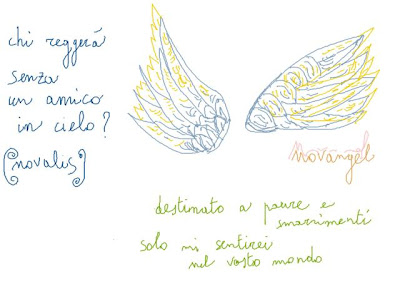 chi reggerá
senza
un amico
in cielo?
(novalis)
novangel
destinato a paure e
smarrimenti
solo mi sentirei
nel vostro mondo